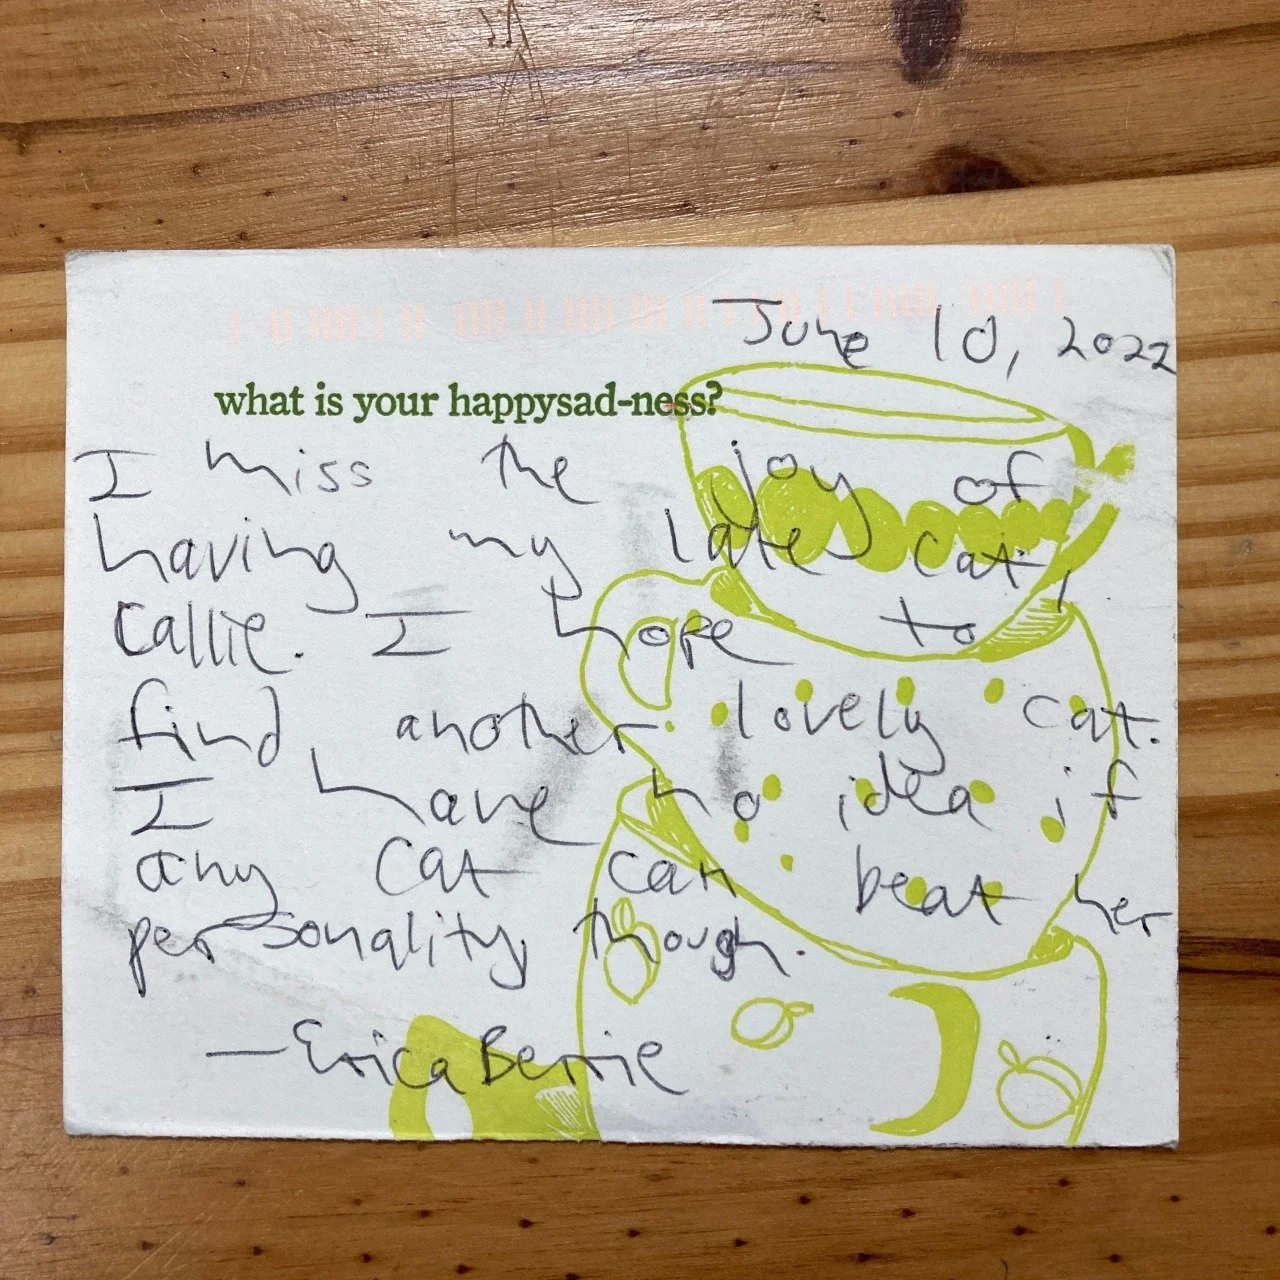 June 10, 2022
what is your happysad-ness?
I miss the joy of
having my late cat,
Callie. I hope to
find another lovely cat.
I have no idea if
any cat can beat her
personality, though.
—Erica Berrie